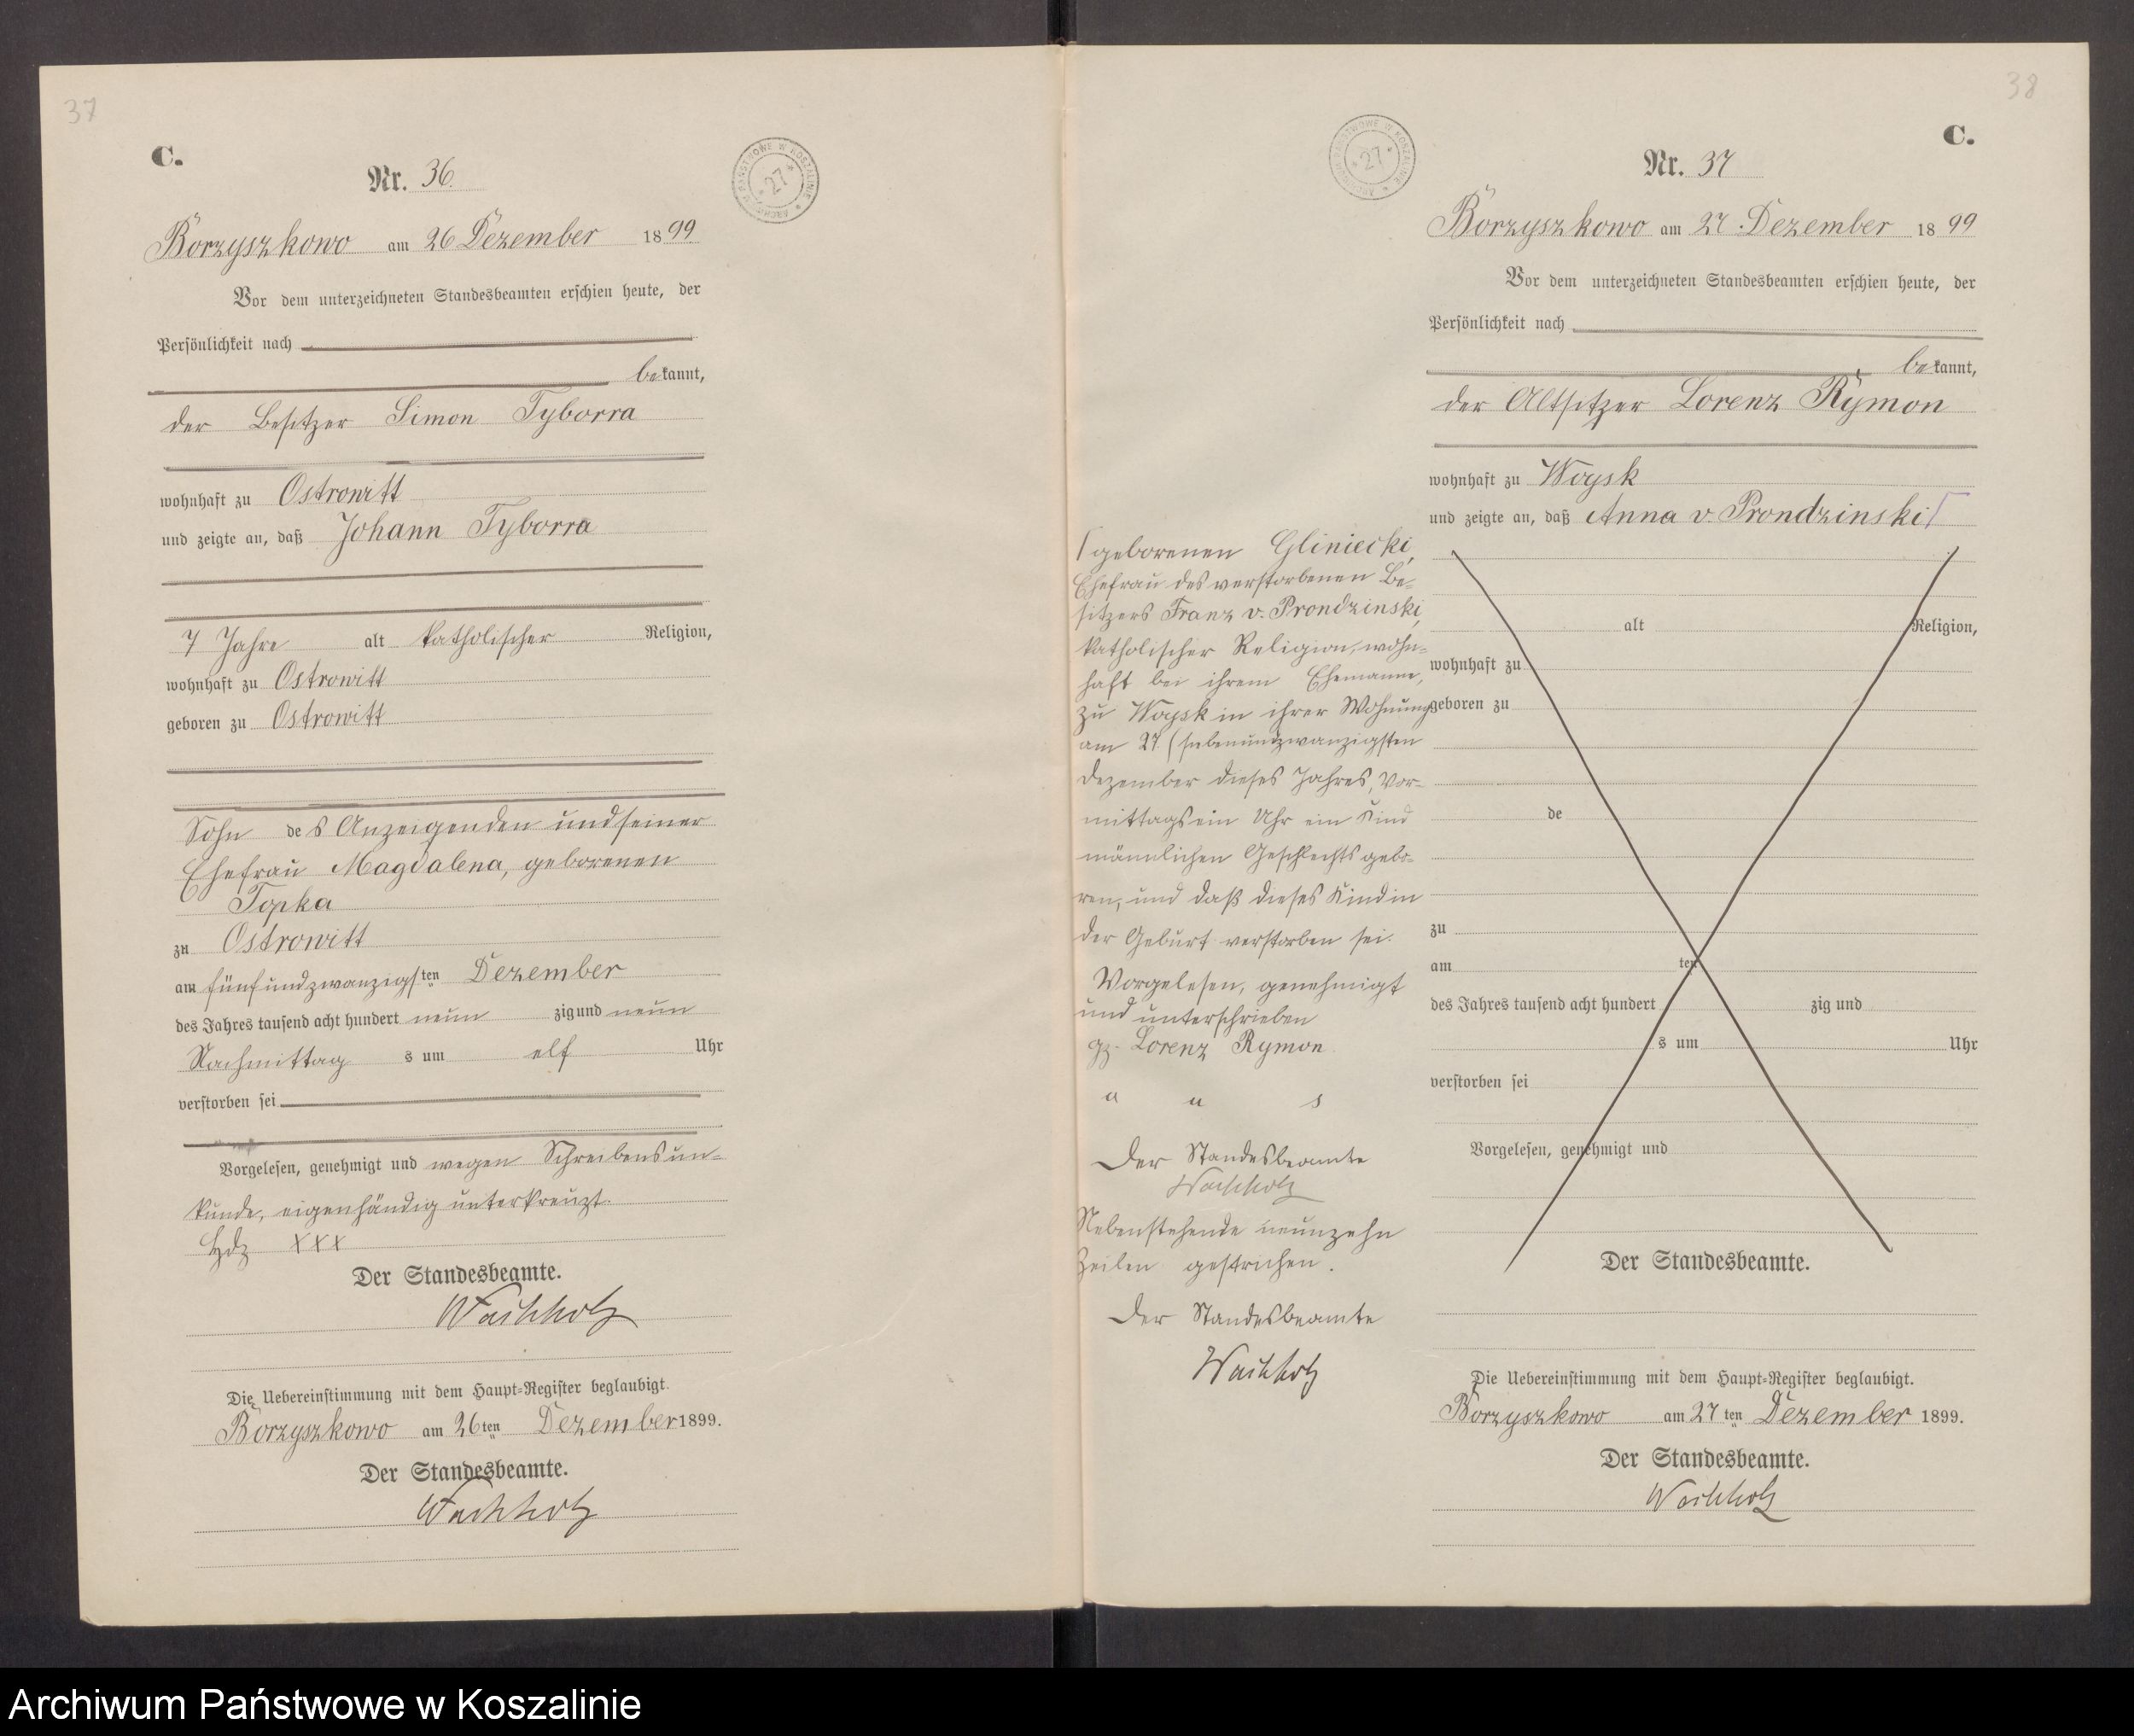 37
C.
Nr. 36.
ARCHIWUM PAŃSTWOWE W KOSZALINIE * 27 *
Borzyszkowo am 26 Dezember 1899
Vor dem unterzeichneten Standesbeamten erschien heute, der
Persönlichkeit nach
bekannt,
der Besitzer Simon Tyborra
wohnhaft zu Ostrowitt
und zeigte an, daß Johann Tyborra
7 Jahre alt katholischer Religion,
wohnhaft zu Ostrowitt
geboren zu Ostrowitt
Sohn des Anzeigenden und seiner
Ehefrau Magdalena, geborenen
Topka
zu Ostrowitt
am fünfundzwanzigsten Dezember
des Jahres tausend acht hundert neun zig und neun
Nachmittag s um elf Uhr
verstorben sei
Vorgelesen, genehmigt und wegen Schreibensun-
kunde, eigenhändig unterkreuzt.
Hdz XXX
Der Standesbeamte.
Wachholz
Die Uebereinstimmung mit dem Haupt-Register beglaubigt.
Borzyszkowo am 26ten Dezember 1899.
Der Standesbeamte.
Wachholz
38
C.
Nr. 37
ARCHIWUM PAŃSTWOWE W KOSZALINIE * 27 *
Borzyszkowo am 27. Dezember 1899
Vor dem unterzeichneten Standesbeamten erschien heute, der
Persönlichkeit nach
bekannt,
der Altsitzer Lorenz Rymon
wohnhaft zu Woysk
und zeigte an, daß Anna v. Prondzinski
geborenen Gliniecki,
Ehefrau des verstorbenen Be-
sitzers Franz v. Prondzinski,
katholischer Religion, wohn-
haft bei ihrem Ehemanne,
zu Woysk in ihrer Wohnung
am 27 (siebenundzwanzigsten
Dezember dieses Jahres, Vor-
mittags ein Uhr ein Kind
männlichen Geschlechts gebo-
ren, und daß dieses Kind in
der Geburt verstorben sei.
Vorgelesen, genehmigt
und unterschrieben
gz. Lorenz Rymon
a u s
Der Standesbeamte
Wachholz
Nebenstehende neunzehn
Zeilen gestrichen.
Der Standesbeamte
Wachholz
alt Religion,
wohnhaft zu
geboren zu
de
zu
am ten
des Jahres tausend acht hundert zig und
s um Uhr
verstorben sei
Vorgelesen, genehmigt und
Der Standesbeamte.
Die Uebereinstimmung mit dem Haupt-Register beglaubigt.
Borzyszkowo am 27ten Dezember 1899.
Der Standesbeamte.
Wachholz
Archiwum Państwowe w Koszalinie